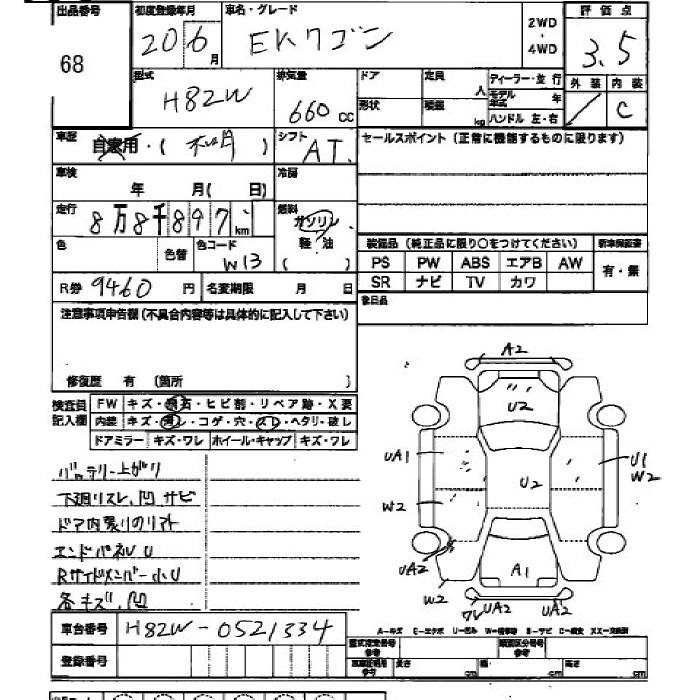 出品番号 初度登録年月 車名・グレード 2WD・4WD 評価点
68 20 6月 EKワゴン 3.5
型式 排気量 ドア 定員 人 ディーラー・並行 外装 内装
H82W 660cc 形状 積載 kg モデル年式 年 C
ハンドル 左・右
車歴 自家用・( ) シフト AT セールスポイント(正常に機能するものに限ります)
車検 年 月( 日) 冷房
走行 8万8千897km 燃料 ガソリン
色 色替 色コード W13 軽油 ( )
装備品(純正品に限り○をつけてください) 新車保証書
PS PW ABS エアB AW 有・無
SR ナビ TV カワ
R券 9460円 名変期限 月 日
後日品
注意事項申告欄(不具合内容等は具体的に記入して下さい)
修復歴 有 (箇所 )
検査員記入欄 FW キズ・飛石・ヒビ割・リペア跡・X要
内装 キズ・汚レ・コゲ・穴・スレ・ヘタリ・破レ
ドアミラー キズ・ワレ ホイール・キャップ キズ・ワレ
バッテリー上がり
下廻りスレ、凹サビ
ドア内張りのリフト
エンドパネルU
Rサイドメンバー小U
各キズ、凹
A2
U2
UA1 U2 U1
W2
W2
UA2 A1
W2 ワレ UA2 UA2
車台番号 H82W-0521334
登録番号
A-キズ C-エクボ U-ヘコミ W-補修跡 S-サビ C-腐食 XX-交換済
型式指定番号 参考 類別区分番号 参考
車庫証明用 参考 長さ cm 幅 cm 高さ cm